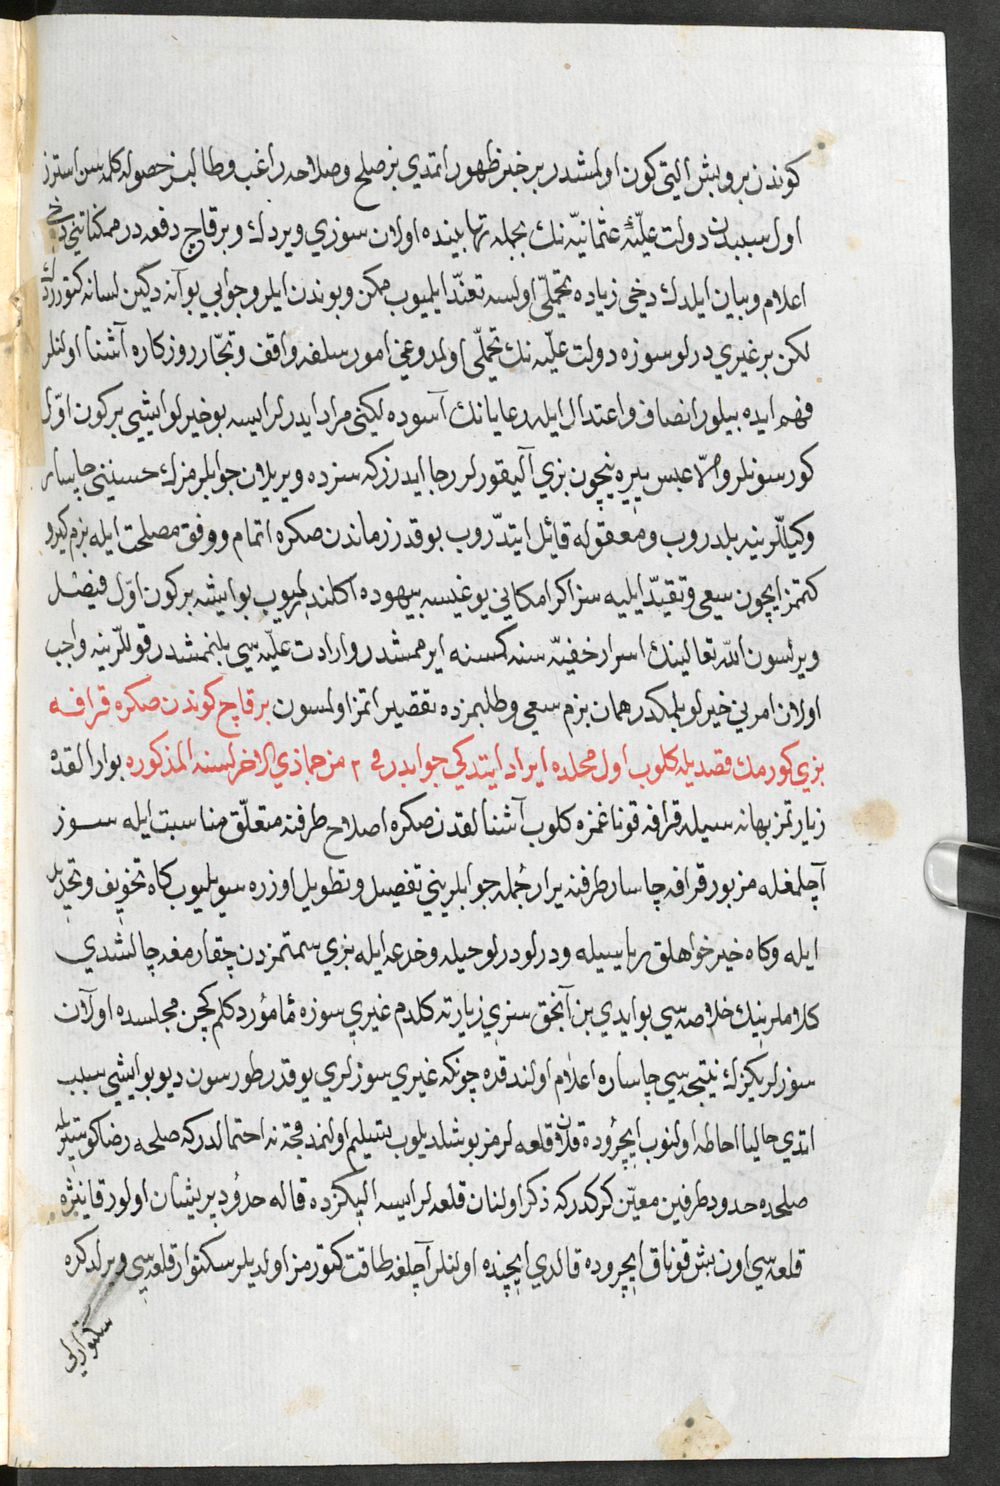 كوندن برو بش التي كون اولمشدر بر خبر ظهور اتمدي بز صلح و صلاحه راغب و طالب بز حصوله كلمه سن استرز
اول سببدن دولت عليّۀ عثمانيّه نك بجمله نهايينده اولان سوزي ويردك و بر قاچ دفعه در ممكناتني دخي
اعلام و بيان ايلدك دخي زياده تحمّلي اولسه تعنّد ايلميوب ممكن و بوندن ايلرو جوابي بو آنه دكين لسانه كتوردك
لكن بر غيري درلو سوزه دولت عليّه نك تحمّلي اولمدوغني امور سلفه واقف و تجّار روزكاره آشنا اولنلر
فهم ايده بيلور انصاف و اعتدال ايله رعايانك آسوده لكني مراد ايدرلر ايسه بو خيرلو ايشي بر كون اوّل
كورسونلر و الّا عبس يره نيچون بزي آليقورلر رجا ايدرز كه سزده ويريلان جوابلرمزك حسنني چاسار
وكيللرينه بلدروب و معقوله قائل ايتدّروب بو قدر زماندن صكره اتمام و وفق مصلحت ايله بزم كيرو
كتممز ايچون سعي و تقيّد ايليه سز اكر امكاني يوغيسه بيهوده اكلندلميوب بو ايشه بر كون اوّل فيصل
ويرلسون الله تعالينك اسرار خفيّه سنه كمسنه ايرممشدر و ارادت عليّه سي بلنممشدر قوللرينه واجب
اولان امرني خيرلو بلمكدر همان بزم سعي و طلبمزده تقصيراتمز اولمسون بر قاچ كوندن صكره قرافه
بزي كورمك قصديله كلوب اول محلده ايراد ايتدكي جوابدر في ٢ من جماذي الاخر لسنه المذكوره بوار القده
زيارتمز بهانه سيله قرافه قوناغمزه كلوب آشنالقدن صكره اصلاح طرفنه متعلّق مناسبت ايله سوز
آچلمغله مزبور قرافه چاسار طرفنه يرار جمله جوابلريني تفصيل و تطويل اوزره سويليوب كاه تخويف و تحذير
ايله و كاه خيرخواهلق رياسيله و درلو درلو حيله و خدعه ايله بزي سمتمزدن چقارمغه چالشدي
كلاملرينك خلاصه سي بو ايدي بن آنجق سزي زيارته كلدم غيري سوزه مأمور دكلم كچن مجلسده اولان
سوزلريكزك نتيجه سي چاساره اعلام اولندقده چونكه غيري سوزلري يوقدر طورسون ديو بو ايشي سبب
اتدي حاليا احاطه اولنوب ايچروده قلان قلعه لرمز بوشلديلوب تسليم اولنمدقجه نه احتمالدر كه صلحه رضا كوستريله
صلحده حدود طرفين معيّن كركدر كه ذكر اولنان قلعه لر ايسه الكزده قاله حدود پريشان اولور قانيژه
قلعه سي اون بش قوناق ايچروده قالدي ايچنده اولنلر آچلغه طاقت كتورمز اولديلر سكتوار قلعه سي ويرلدكره
سكتوارلي